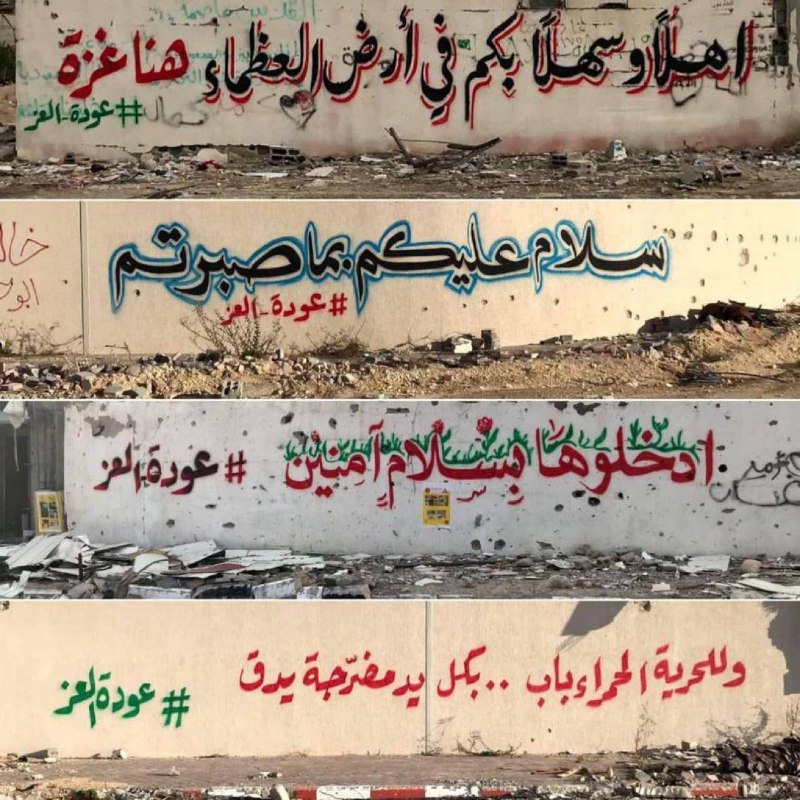 اهلًا وسهلًا بكم في أرض العظماء هنا غزة
#عودة_العز
سلام عليكم بما صبرتم
#عودة_العز
ادخلوها بِسَلامٍ آمِنين
#عودة_العز
وللحرية الحمراء باب .. بكل يد مضرّجة يدق
#عودة_العز